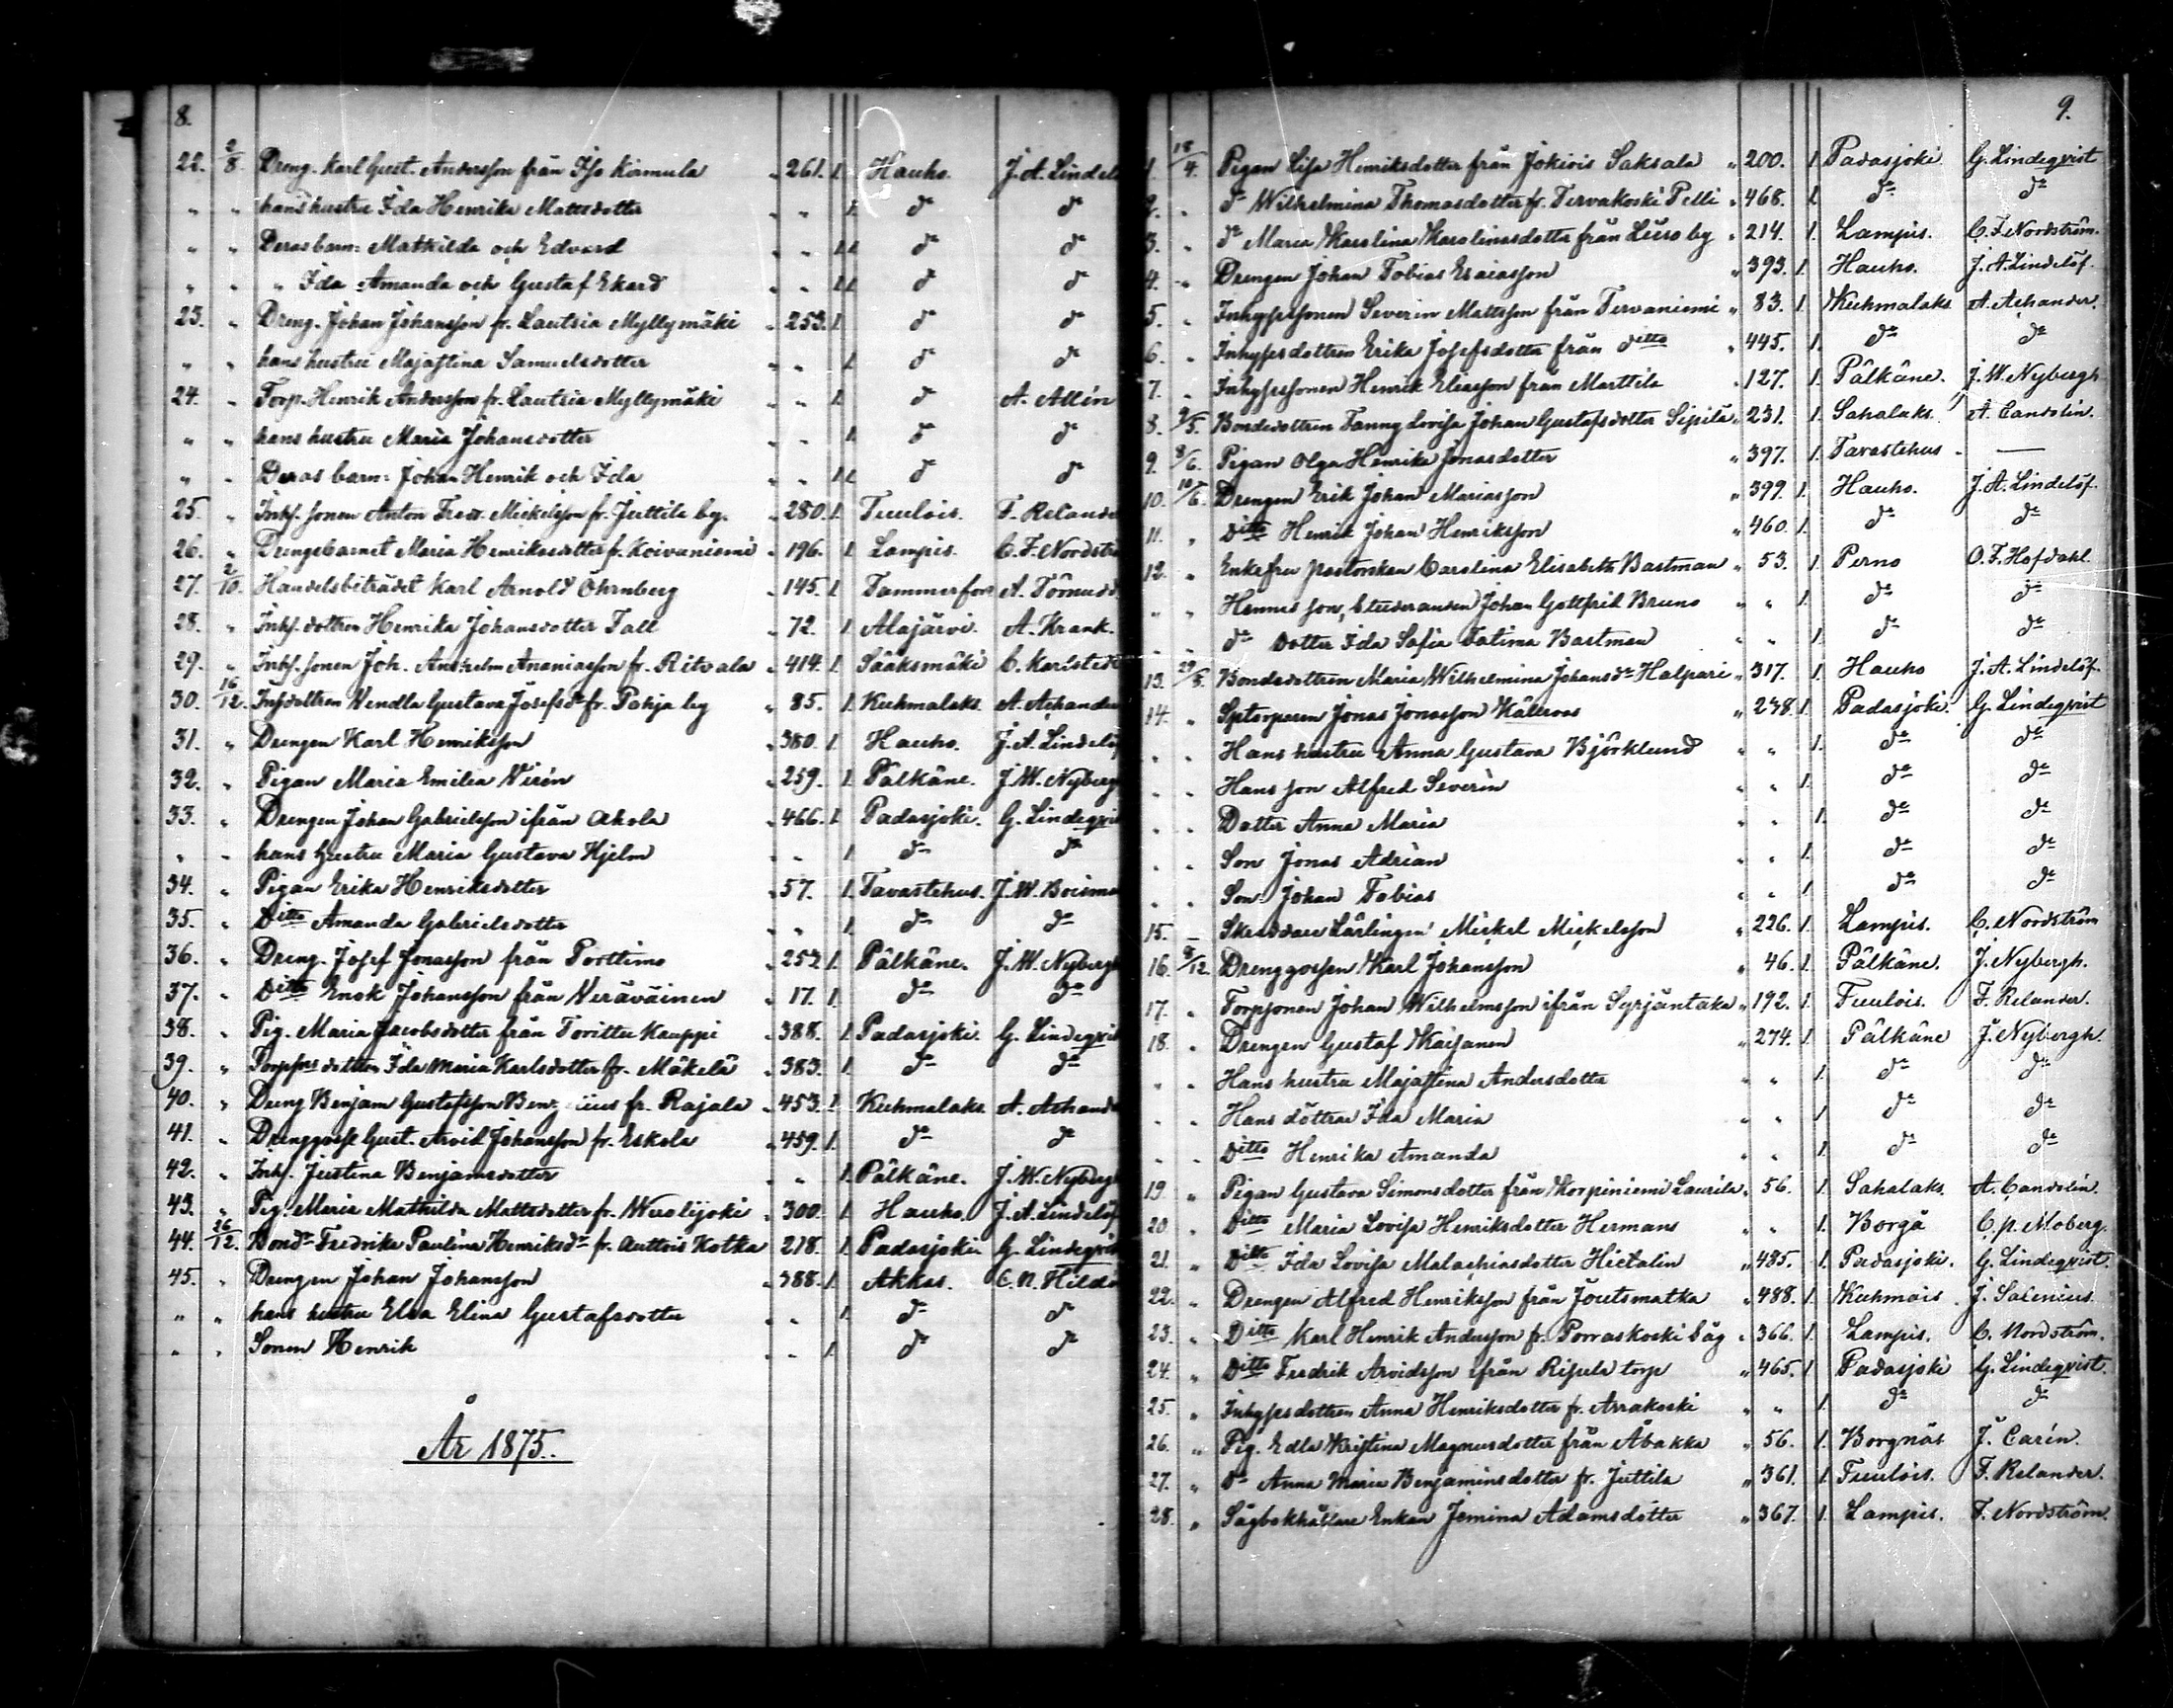 8.
22. 2/8 Dreng. Karl Gust. Andersson från Iso Kirmula " 261. 1. Hauho. J. A. Lindelö
" " hans hustru Ida Henrika Mattsdotter " " 1. do do
" " Deras barn: Mathilda och Edvard " " 1 1 do do
" " " Ida Amanda och Gustaf Ekard " " 1 1 do do
23. " Dreng. Johan Johansson fr. Lautsia Myllymäki " 253. 1. do do
" " hans hustru Majastina Samuelsdotter " " 1. do do
24. " Torp. Henrik Andersson fr. Lautsia Myllymäki " " 1. do A. Allén
" " hans hustru Maria Johansdotter " " 1. do do
" " Deras barn: Johan Henrik och Ida " " 1 1 do do
25. " Inhs. sonen Anton Fredr. Mickelsson fr. Juttila by. " 280. 1. Tuulois. F. Relande
26. " Drengebarnet Maria Henriksdotter fr. Koivuniemi " 196. 1. Lampis. C. F. Nordströ
27. 2/10. Handelsbeträdet Karl Arnold Öhrnberg " 145. 1. Tammerfors A. Törnudd
28. " Inhs. dottren Henrika Johansdotter Tall " 72. 1. Alajärvi. A. Krank.
29. " Inhs. sonen Joh. Anshelm Ananiasson fr. Ritvala " 414. 1. Sääksmäki C. Karlstedt
30. 16/12. Inhsdottren Vendla Gustava Josefsdr fr. Pohja by " 85. 1. Kuhmalaks. A. Achander
31. " Drengen Karl Henriksson " 380. 1. Hauho. J. A. Lindelöf
32. " Pigan Maria Emilia Virén " 259. 1. Pälkäne. J. W. Nyberg
33. " Drengen Johan Gabrielsson ifrån Ahola " 466. 1. Padasjoki. G. Lindeqvis
" " hans hustru Maria Gustava Hjelm " " 1. do do
34. " Pigan Erika Henriksdotter " 57. 1. Tavastehus. J. W. Boisma
35. " Ditto Amanda Gabrielsdotter " " 1. do do
36. " Dreng. Josef Jonasson från Porttimo " 252. 1. Pälkäne. J. W. Nybergh
37. " Ditto Enok Johansson från Neräväinen " 17. 1. do do
38. " Pig. Maria Jacobsdotter från Torittu Kauppi " 388. 1. Padasjoki. G. Lindeqvis
39. " Torpsdottren Ida Maria Karlsdotter fr. Mäkelä " 383. 1. do do
40. " Dreng Benjam Gustafsson fr. Rajala " 453. 1. Kuhmalaks. A. Achand
41. " Drenggosse Gust. Arvid Johansson fr. Eskola " 459. 1. do do
42. " Inhs. Justina Benjamsdotter " 1. Pälkäne. J. W. Nybergh
43. " Pig. Maria Mathilda Mattsdotter fr. Wuolijoki " 300. 1. Hauho. J. A. Lindelöf
44. 26/12. Bonddr Fredrika Paulina Henriksdr fr. Auttois Kotka 218. 1. Padasjoki. G. Lindeqvis
45. " Drengen Johan Johansson " 388. 1. Akkas. C. N. Hildé
" " hans hustru Elsa Elina Gustafsdotter " " 1. do do
" " Sonen Henrik " " 1. do do
År 1875.
9.
1. 18/4. Pigan Lisa Henriksdotter från Jokiois Saksala " 200. 1. Padasjoki G. Lindeqvist
2. " do Wilhelmina Thomasdotter fr. Tervakoski Pelli " 468. 1. do do
3. " do Maria Karolina Karolinasdotter från Liiso by " 214. 1. Lampis. C. F. Nordström.
4. " Drengen Johan Tobias Esaiasson " 393. 1. Hauho. J. A. Lindelöf.
5. " Inhysessonen Severin Mattsson från Tervaniemi " 83. 1. Kuhmalaks A. Achander.
6. " Inhysesdottren Erika Josefsdotter från Ditto " 445. 1. do do
7. " Inhysessonen Henrik Eliasson från Marttila " 127. 1. Pälkäne. J. W. Nybergh
8. 9/5. Bondedottren Fanny Lovisa Johan Gustafsdotter Sipilä " 231. 1. Sahalaks. A. Candolin.
9. 8/6. Pigan Olga Henrika Jonasdotter " 397. 1. Tavastehus. —
10. 10/6. Drengen Erik Johan Mariasson " 399. 1. Hauho. J. A. Lindelöf.
11. " Ditto Henrik Johan Henriksson " 460. 1. do do
12. " Enkefru pastorskan Carolina Elisabeth Bastman " 53. 1. Perno O. F. Hofdahl.
" " Hennes son, Studeranden Johan Gottfrid Bruno " " 1. do do
" " do dotter Ida Sofia Fatima Bastman " " 1. do do
13. 29/8. Bondedottren Maria Wilhelmina Johansdr Halpari " 317. 1. Hauho J. A. Lindelöf.
14. " Sptorparen Jonas Jonasson Källroos " 238. 1. Padasjoki. G. Lindeqvist
" " Hans hustru Anna Gustava Björklund " " 1. do do
" " Hans son Alfred Severin " " 1. do do
" " Dotter Anna Maria " " 1. do do
" " Son Jonas Adrian " " 1. do do
" " Son Johan Tobias " " 1. do do
15. — Skräddare Lärlingen Mickel Mickelsson " 226. 1. Lampis. C. Nordström
16. 6/12. Drenggossen Karl Johansson " 46. 1. Pälkäne. J. Nybergh.
17. " Torpsonen Johan Wilhelmsson ifrån Syrjäntaka " 192. 1. Tuulois. F. Relander.
18. " Drengen Gustaf Kaijanen " 274. 1. Pälkäne J. Nybergh.
" " Hans hustru Majastina Andersdotter " " 1. do do
" " Hans döttrar Ida Maria " " 1. do do
" " Ditto Henrika Amanda " " 1. do do
19. " Pigan Gustava Simonsdotter från Korpiniemi Laurila " 56. 1. Sahalaks. A. Candolin.
20. " Ditto Maria Lovisa Henriksdotter Hermans " " 1. Borgå C. p. Moberg.
21. " Ditto Ida Lovisa Malachiasdotter Hietalin " 485. 1. Padasjoki. G. Lindeqvist.
22. " Drengen Alfred Henriksson från Joutsmatka " 488. 1. Kuhmois. J. Salenius.
23. " Ditto Karl Henrik Andersson fr. Porraskoski såg " 366. 1. Lampis. C. Nordström.
24. " Ditto Fredrik Arvidsson ifrån Risula torp " 465. 1. Padasjoki G. Lindeqvist.
25. " Inhysesdottren Anna Henriksdotter fr. Arrakoski " " 1. do do
26. " Pig. Edla Kristina Magnusdotter från Äbakka " 56. 1. Borgnäs J. Carén.
27. " do Anna Maria Benjaminsdotter fr. Juttila " 361. 1. Tuulois. F. Relander.
28. " Sågbokhållare Enkan Jemina Adamsdotter " 367. 1. Lampis. F. Nordström.